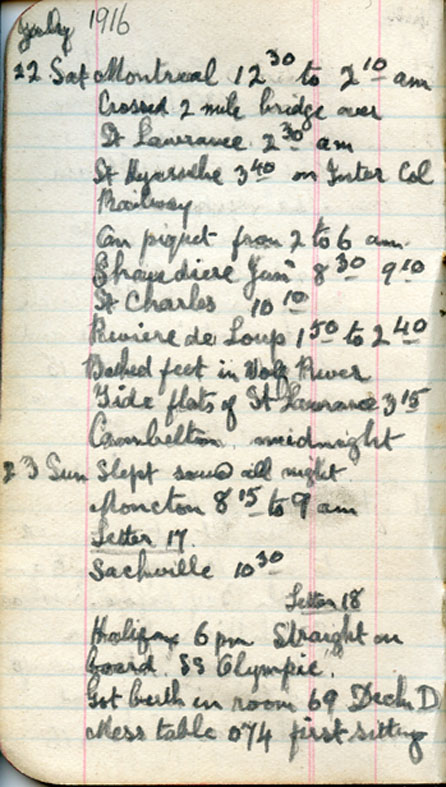 July 1916
22 Sat Montreal 12 30 to 2 10 am
Crossed 2 mile bridge over
St Lawrance 2 30 am
St Hyacinthe 3 40 on Inter Col
Railway
On piquet from 2 to 6 am.
Shaudiere Jan 8 30 9 10
St Charles 10 10
Riviere de Loup 1 50 to 2 40
Bathed feet in Wolf River
Tide flats of St Lawrance 3 15
Cambelton midnight
23 Sun Slept sound all night.
Moncton 8 15 to 9 am
Letter 17.
Sackville 10 30
Letter 18
Halifax 6 pm Straight on
board "SS Olympic".
Got berth in room 69 Deck D
Mess table 074 first sitting